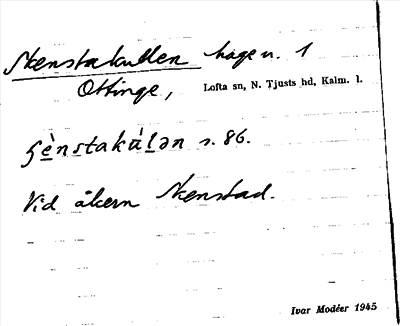 Stenstakullen hage n. 1
Ottinge, Lofta sn, N. Tjusts hd, Kalm. l.
s. 86.
Vid åkern Stenstad.
Ivar Modéer 1945